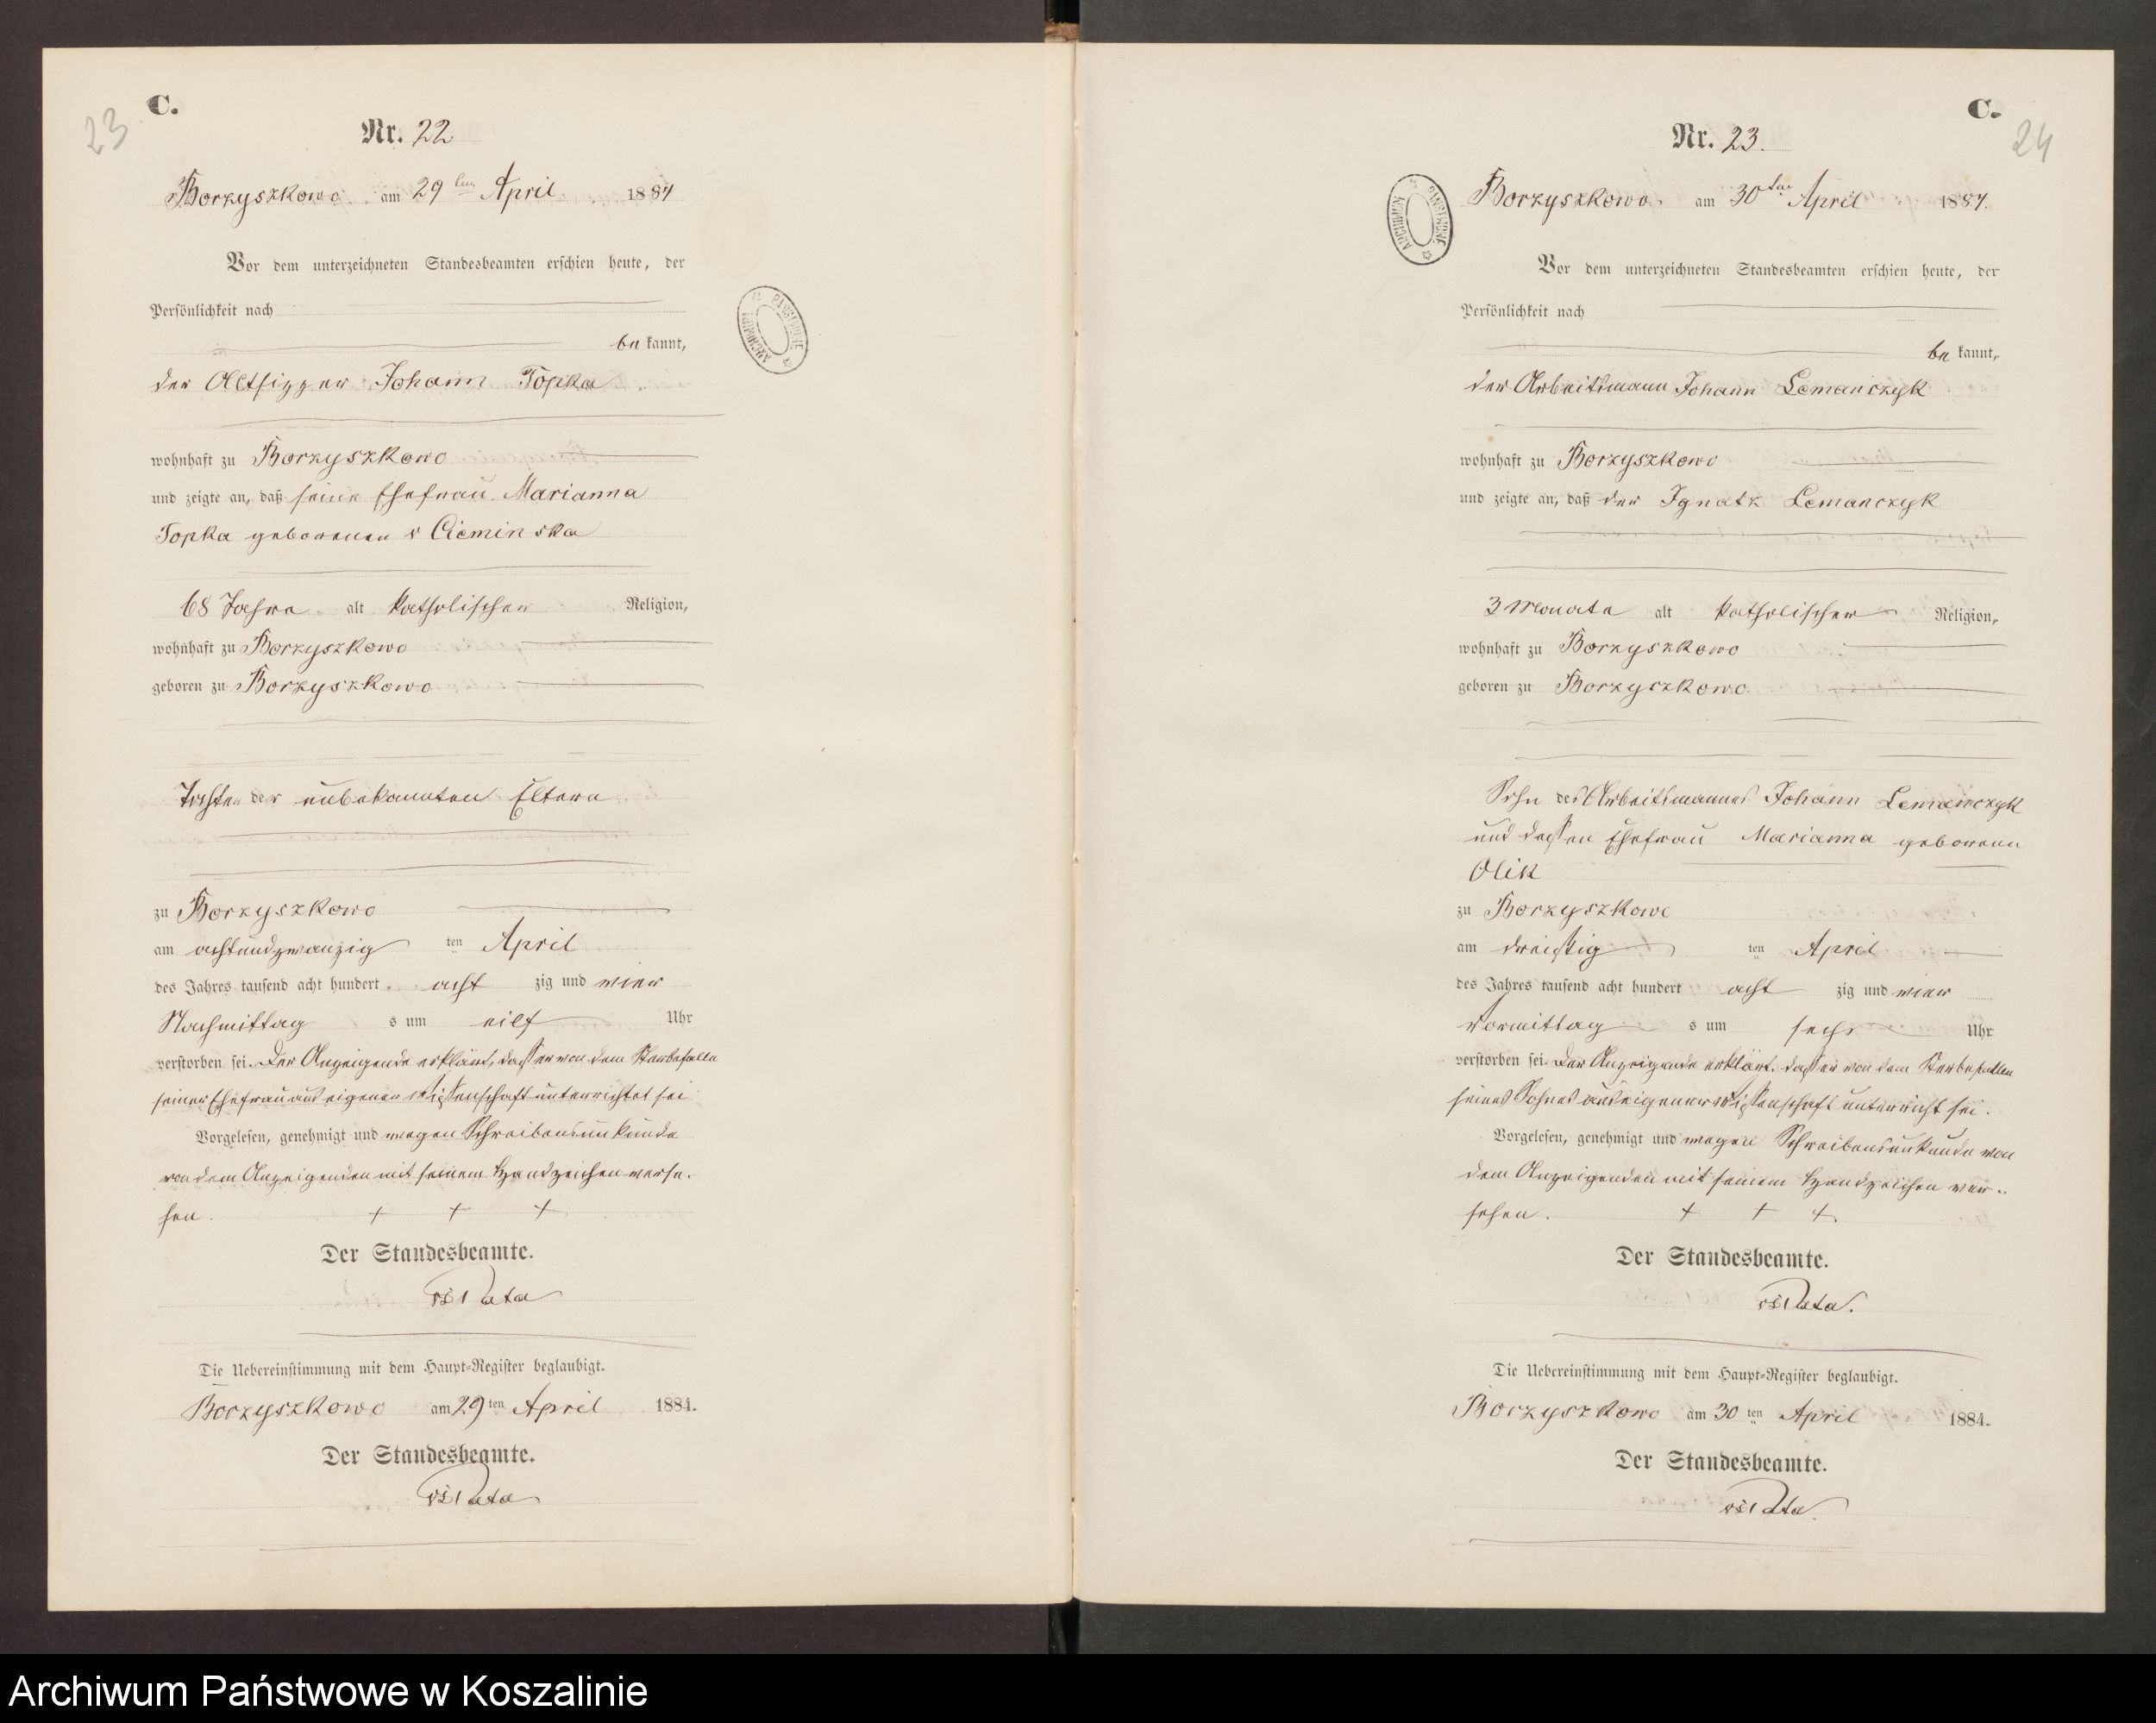 23
C.
Nr. 22
Borzyszkowo am 29 ten April 1884
Vor dem unterzeichneten Standesbeamten erschien heute, der
Persönlichkeit nach
be kannt,
der Altsitzer Johann Topka
wohnhaft zu Borzyszkowo
und zeigte an, daß seine Ehefrau Marianna
Topka geborenen Cieminska
68 Jahre alt katholischer Religion,
wohnhaft zu Borzyszkowo
geboren zu Borzyszkowo
Tochter der unbekannten Eltern
zu Borzyszkowo
am achtundzwanzig ten April
des Jahres tausend acht hundert acht zig und vier
Nachmittag s um eilf Uhr
verstorben sei. Der Anzeigende erklärt, dass er von dem Sterbefalle
seiner Ehefrau aus eigener Wissenschaft unterrichtet sei
Vorgelesen, genehmigt und wegen Schreibensunkunde
von dem Anzeigenden mit seinem Handzeichen verse-
hen. + + +
Der Standesbeamte.
Die Uebereinstimmung mit dem Haupt-Register beglaubigt.
Borzyszkowo am 29 ten April 1884.
Der Standesbeamte.
ARCHIWUM PAŃSTWOWE
C.
24
Nr. 23.
Borzyszkowo am 30 ten April 1884.
Vor dem unterzeichneten Standesbeamten erschien heute, der
Persönlichkeit nach
be kannt,
der Arbeitsmann Johann Lemanczyk
wohnhaft zu Borzyszkowo
und zeigte an, daß der Ignatz Lemanczyk
3 Monate alt katholischer Religion,
wohnhaft zu Borzyszkowo
geboren zu Borzyszkowo
Sohn des Arbeitsmannes Johann Lemanczyk
und dessen Ehefrau Marianna geborene
Olik
zu Borzyszkowo
am dreißig ten April
des Jahres tausend acht hundert acht zig und vier
Vormittag s um sechs Uhr
verstorben sei. Der Anzeigende erklärt, dass er von dem Sterbefalle
seines Sohnes aus eigener Wissenschaft unterricht sei.
Vorgelesen, genehmigt und wegen Schreibensunkunde von
dem Anzeigenden mit seinem Handzeichen ver-
sehen. + + +
Der Standesbeamte.
Die Uebereinstimmung mit dem Haupt-Register beglaubigt.
Borzyszkowo am 30 ten April 1884.
Der Standesbeamte.
ARCHIWUM PAŃSTWOWE
Archiwum Państwowe w Koszalinie